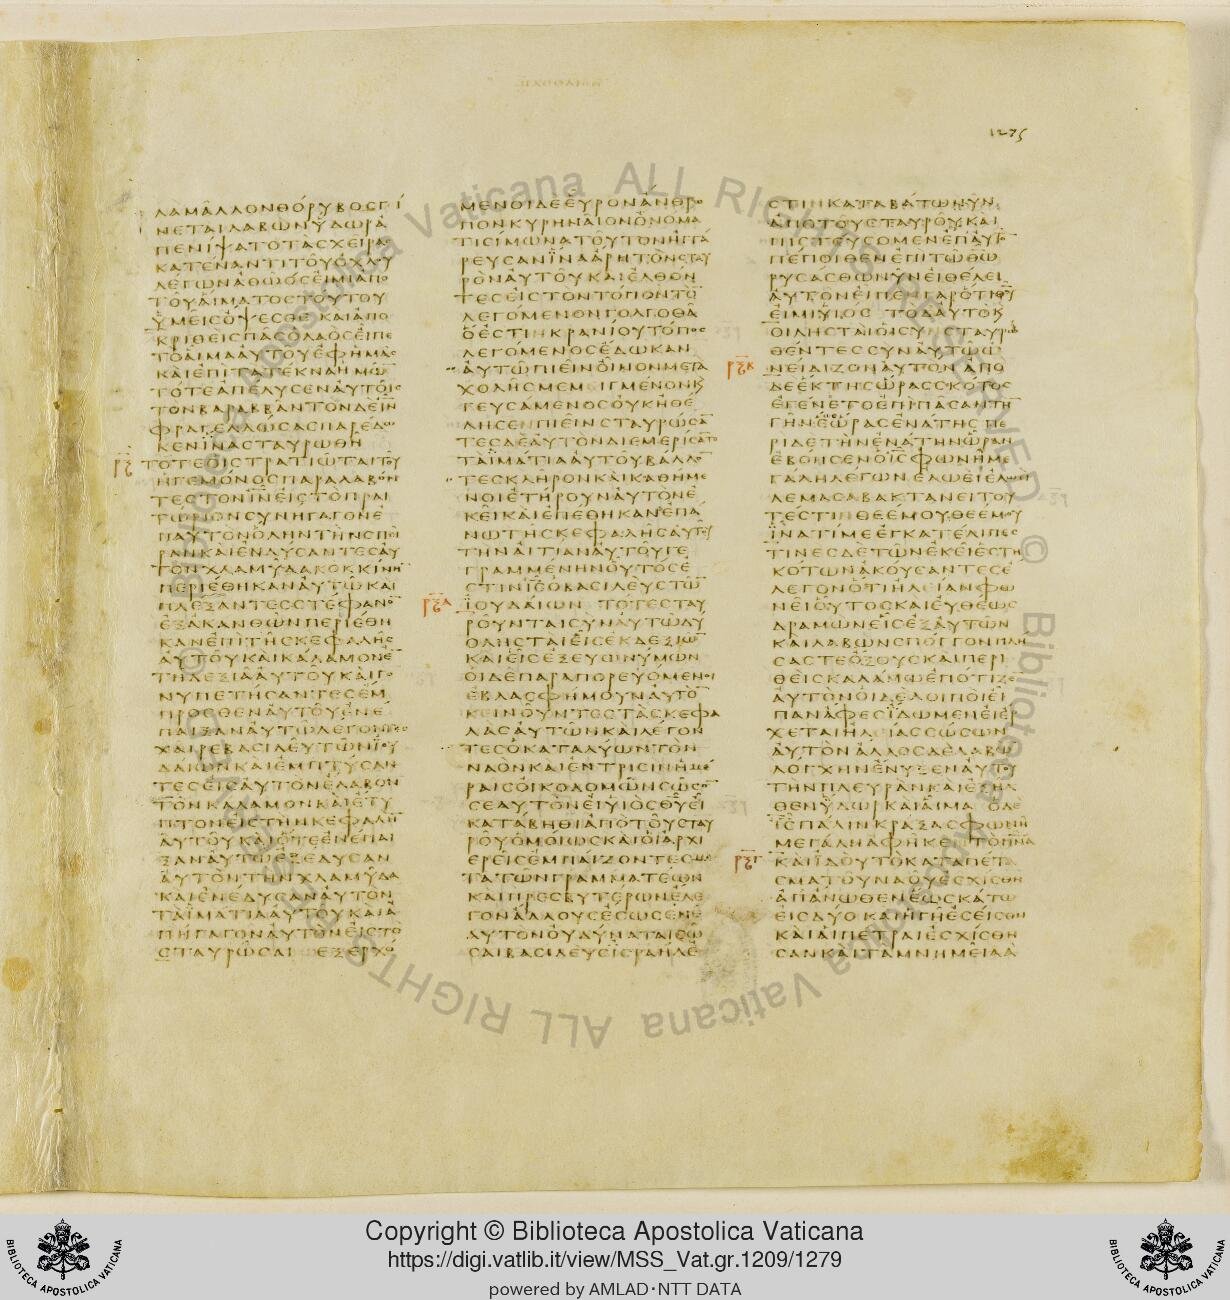 1275
ΛΑΜΑΛΛΟΝΘΟΡΥΒΟСΓΙ
ΝΕΤΑΙΛΑΒΩΝΥΔΩΡΑ
ΠΕΝΙΨΑΤΟΤΑСΧΕΙΡΑС
ΚΑΤΕΝΑΝΤΙΤΟΥΟΧΛΟΥ
ΛΕΓΩΝΑΘΩΟСΕΙΜΙΑΠΟ
ΤΟΥΑΙΜΑΤΟСΤΟΥΤΟΥ
ΥΜΕΙСΟΨΕСΘΕ ΚΑΙΑΠΟ
ΚΡΙΘΕΙСΠΑСΟΛΑΟСΕΙΠΕ
ΤΟΑΙΜΑΑΥΤΟΥΕΦΗΜΑС
ΚΑΙΕΠΙΤΑΤΕΚΝΑΗΜΩ
ΤΟΤΕΑΠΕΛΥСΕΝΑΥΤΟΙС
ΤΟΝΒΑΡΑΒΒΑΝΤΟΝΔΕΙΝ
ΦΡΑΓΕΛΛΩСΑСΠΑΡΕΔΩ
ΚΕΝΙΝΑСΤΑΥΡΩΘΗ
ΤΟΤΕΟΙСΤΡΑΤΙΩΤΑΙΤΟΥ
ΗΓΕΜΟΝΟСΠΑΡΑΛΑΒΟΝ
ΤΕСΤΟΝΙΝΕΙСΤΟΠΡΑΙ
ΤΩΡΙΟΝСΥΝΗΓΑΓΟΝΕ
ΠΑΥΤΟΝΟΛΗΝΤΗΝСΠΕΙ
ΡΑΝΚΑΙΕΝΔΥСΑΝΤΕСΑΥ
ΤΟΝΧΛΑΜΥΔΑΚΟΚΚΙΝΗ
ΠΕΡΙΕΘΗΚΑΝΑΥΤΩΚΑΙ
ΠΛΕΞΑΝΤΕССΤΕΦΑΝΟ
ΕΞΑΚΑΝΘΩΝΠΕΡΙΕΘΗ
ΚΑΝΕΠΙΤΗСΚΕΦΑΛΗС
ΑΥΤΟΥΚΑΙΚΑΛΑΜΟΝΕ
ΤΗΔΕΞΙΑΑΥΤΟΥΚΑΙΓΟ
ΝΥΠΕΤΗСΑΝΤΕСΕΜ
ΠΡΟСΘΕΝΑΥΤΟΥΕΝΕ
ΠΑΙΞΑΝΑΥΤΩΛΕΓΟΝΤΕС
ΧΑΙΡΕΒΑСΙΛΕΥΤΩΝΙΟΥ
ΔΑΙΩΝΚΑΙΕΜΠΤΥСΑΝ
ΤΕСΕΙСΑΥΤΟΝΕΛΑΒΟΝ
ΤΟΝΚΑΛΑΜΟΝΚΑΙΕΤΥ
ΠΤΟΝΕΙСΤΗΝΚΕΦΑΛΗ
ΑΥΤΟΥΚΑΙΟΤΕΕΝΕΠΑΙ
ΞΑΝΑΥΤΩΕΞΕΔΥСΑΝ
ΑΥΤΟΝΤΗΝΧΛΑΜΥΔΑ
ΚΑΙΕΝΕΔΥСΑΝΑΥΤΟΝ
ΤΑΙΜΑΤΙΑΑΥΤΟΥΚΑΙΑ
ΠΗΓΑΓΟΝΑΥΤΟΝΕΙСΤΟ
СΤΑΥΡΩСΑΙ ΕΞΕΡΧΟ
ΜΕΝΟΙΔΕΕΥΡΟΝΑΝΘΡΩ
ΠΟΝΚΥΡΗΝΑΙΟΝΟΝΟΜΑ
ΤΙСΙΜΩΝΑΤΟΥΤΟΝΗΓΓΑ
ΡΕΥСΑΝΙΝΑΑΡΗΤΟΝСΤΑΥ
ΡΟΝΑΥΤΟΥΚΑΙΕΛΘΟΝ
ΤΕСΕΙСΤΟΝΤΟΠΟΝΤΟ
ΛΕΓΟΜΕΝΟΝΓΟΛΓΟΘΑ
ΟΕСΤΙΝΚΡΑΝΙΟΥΤΟΠΟС
ΛΕΓΟΜΕΝΟСΕΔΩΚΑΝ
ΑΥΤΩΠΙΕΙΝΟΙΝΟΝΜΕΤΑ
ΧΟΛΗСΜΕΜΙΓΜΕΝΟΝΚ
ΓΕΥСΑΜΕΝΟСΟΥΚΗΘΕ
ΛΗСΕΝΠΙΕΙΝСΤΑΥΡΩСΑ
ΤΕСΔΕΑΥΤΟΝΔΙΕΜΕΡΙСΑΝΤΟ
ΤΑΙΜΑΤΙΑΑΥΤΟΥΒΑΛΛΟ
ΤΕСΚΛΗΡΟΝΚΑΙΚΑΘΗΜΕ
ΝΟΙΕΤΗΡΟΥΝΑΥΤΟΝΕ
ΚΕΙΚΑΙΕΠΕΘΗΚΑΝΕΠΑ
ΝΩΤΗСΚΕΦΑΛΗСΑΥΤΟΥ
ΤΗΝΑΙΤΙΑΝΑΥΤΟΥΓΕ
ΓΡΑΜΜΕΝΗΝΟΥΤΟСΕ
СΤΙΝΙСΟΒΑСΙΛΕΥСΤΩ
ΙΟΥΔΑΙΩΝ ΤΟΤΕСΤΑΥ
ΡΟΥΝΤΑΙСΥΝΑΥΤΩΔΥ
ΟΛΗСΤΑΙΕΙСΕΚΔΕΞΙΩ
ΚΑΙΕΙСΕΞΕΥΩΝΥΜΩΝ
ΟΙΔΕΠΑΡΑΠΟΡΕΥΟΜΕΝΟΙ
ΕΒΛΑСΦΗΜΟΥΝΑΥΤΟ
ΚΕΙΝΟΥΝΤΕСΤΑСΚΕΦΑ
ΛΑСΑΥΤΩΝΚΑΙΛΕΓΟΝ
ΤΕСΟΚΑΤΑΛΥΩΝΤΟΝ
ΝΑΟΝΚΑΙΕΝΤΡΙСΙΝΗΜΕ
ΡΑΙСΟΙΚΟΔΟΜΩΝСΩСΟ
СΕΑΥΤΟΝΕΙΥΙΟСΘΥΕΙ
ΚΑΤΑΒΗΘΙΑΠΟΤΟΥСΤΑΥ
ΡΟΥΟΜΟΙΩСΚΑΙΟΙΑΡΧΙ
ΕΡΕΙСΕΜΠΑΙΖΟΝΤΕСΜΕ
ΤΑΤΩΝΓΡΑΜΜΑΤΕΩΝ
ΚΑΙΠΡΕСΒΥΤΕΡΩΝΕΛΕ
ΓΟΝΑΛΛΟΥСΕСΩСΕΝΕ
ΑΥΤΟΝΟΥΔΥΝΑΤΑΙСΩ
СΑΙΒΑСΙΛΕΥСΙСΡΑΗΛΕ
СΤΙΝΚΑΤΑΒΑΤΩΝΥΝ
ΑΠΟΤΟΥСΤΑΥΡΟΥΚΑΙ
ΠΙСΤΕΥСΟΜΕΝΕΠΑΥΤΟ
ΠΕΠΟΙΘΕΝΕΠΙΤΩΘΩ
ΡΥСΑСΘΩΝΥΝΕΙΘΕΛΕΙ
ΑΥΤΟΝΕΙΠΕΝΓΑΡΟΤΙΘΥ
ΕΙΜΙΥΙΟС ΤΟΔΑΥΤΟΚ
ΟΙΛΗСΤΑΙΟΙСΥΝСΤΑΥΡΩ
ΘΕΝΤΕССΥΝΑΥΤΩΩ
ΝΕΙΔΙΖΟΝΑΥΤΟΝ ΑΠΟ
ΔΕΕΚΤΗСΩΡΑССΚΟΤΟС
ΕΓΕΝΕΤΟΕΠΙΠΑСΑΝΤΗ
ΓΗΝΕΩСΩΡΑСΕΝΑΤΗСΠΕ
ΡΙΔΕΤΗΝΕΝΑΤΗΝΩΡΑΝ
ΕΒΟΗСΕΝΟΙСΦΩΝΗΜΕ
ΓΑΛΗΛΕΓΩΝΕΛΩΕΙΕΛΩΕΙ
ΛΕΜΑСΑΒΑΚΤΑΝΕΙΤΟΥ
ΤΕСΤΙΝΘΕΕΜΟΥΘΕΕΜΟΥ
ΙΝΑΤΙΜΕΕΓΚΑΤΕΛΙΠΕС
ΤΙΝΕСΔΕΤΩΝΕΚΕΙΕСΤΗ
ΚΟΤΩΝΑΚΟΥСΑΝΤΕСΕ
ΛΕΓΟΝΟΤΙΗΛΕΙΑΝΦΩ
ΝΕΙΟΥΤΟСΚΑΙΕΥΘΕΩС
ΔΡΑΜΩΝΕΙСΕΞΑΥΤΩΝ
ΚΑΙΛΑΒΩΝСΠΟΓΓΟΝΠΛΗ
СΑСΤΕΟΞΟΥСΚΑΙΠΕΡΙ
ΘΕΙСΚΑΛΑΜΩΕΠΟΤΙΖΕ
ΑΥΤΟΝΟΙΔΕΛΟΙΠΟΙΕΙ
ΠΑΝΑΦΕСΙΔΩΜΕΝΕΙΕΡ
ΧΕΤΑΙΗΛΕΙΑССΩСΩΝ
ΑΥΤΟΝΑΛΛΟСΔΕΛΑΒΩ
ΛΟΓΧΗΝΕΝΥΞΕΝΑΥΤΟΥ
ΤΗΝΠΛΕΥΡΑΝΚΑΙΕΞΗΛ
ΘΕΝΥΔΩΡΚΑΙΑΙΜΑ ΟΔΕ
ΙСΠΑΛΙΝΚΡΑΞΑСΦΩΝΗ
ΜΕΓΑΛΗΑΦΗΚΕΝΤΟΠΝΑ
ΚΑΙΙΔΟΥΤΟΚΑΤΑΠΕΤΑ
СΜΑΤΟΥΝΑΟΥΕСΧΙСΘΗ
ΑΠΑΝΩΘΕΝΕΩСΚΑΤΩ
ΕΙСΔΥΟ ΚΑΙΗΓΗΕСΕΙСΘΗ
ΚΑΙΑΙΠΕΤΡΑΙΕСΧΙСΘΗ
СΑΝΚΑΙΤΑΜΝΗΜΕΙΑΑ
Copyright © Biblioteca Apostolica Vaticana
https://digi.vatlib.it/view/MSS_Vat.gr.1209/1279
powered by AMLAD·NTT DATA
BIBLIOTECA APOSTOLICA VATICANA
BIBLIOTECA APOSTOLICA VATICANA